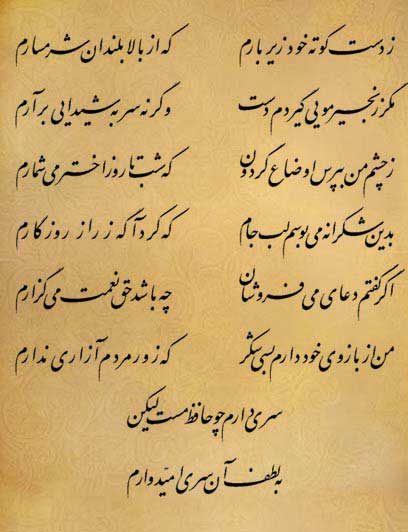 ز دست کوته خود زیر بارم که از بالا بلندان شرمسارم
مگر زنجیر مویی گیردم دست وگر نه سر به شیدایی برآرم
ز چشم من بپرس اوضاع گردون که شب تا روز اختر می شمارم
بدین شکرانه می بوسم لب جام که کرد آگه ز راز روزگارم
اگر گفتم دعای می فروشان چه باشد حق نعمت می گزارم
من از بازوی خود دارم بسی شکر که زور مردم آزاری ندارم
سری دارم چو حافظ مست لیکن
به لطف آن سری امیدوارم